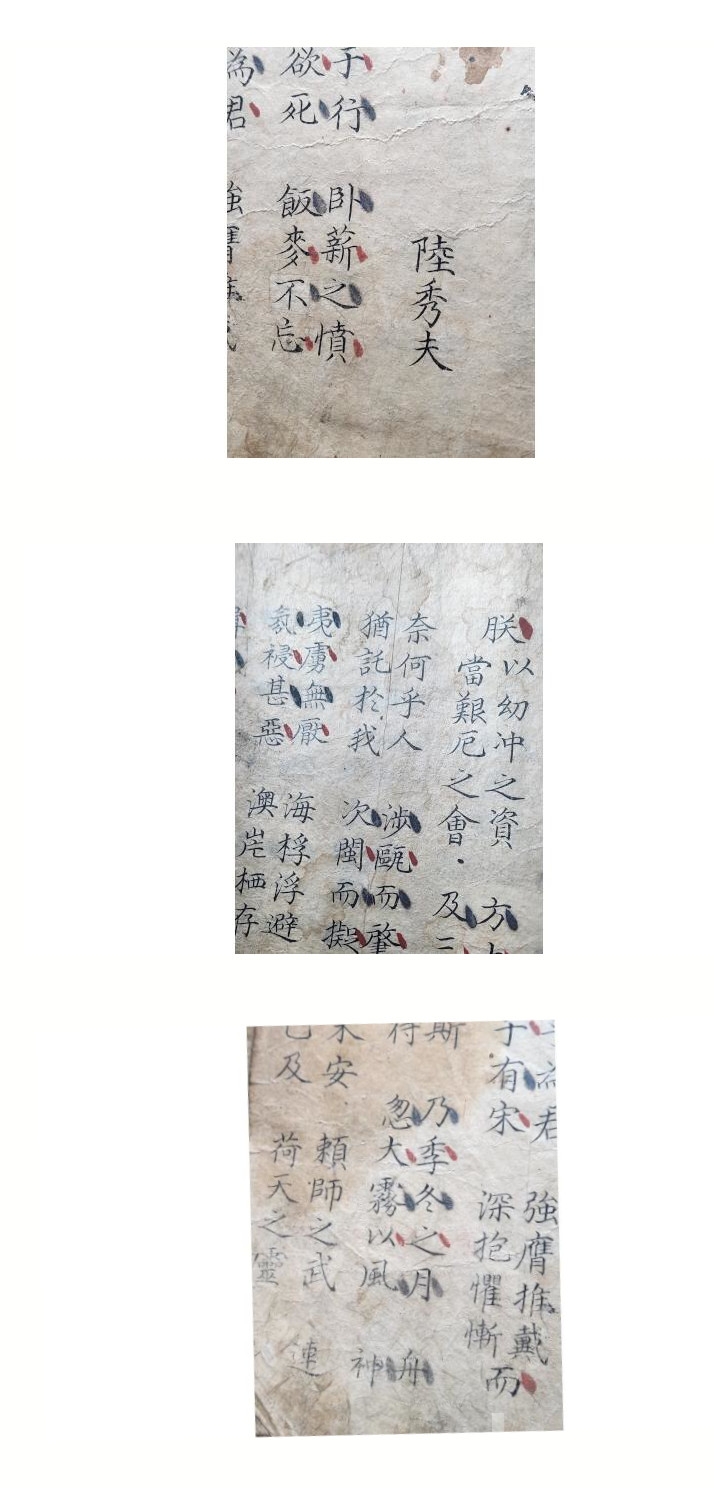 陸秀夫
于行 卧薪之憤
欲死 飯麥不忘
為君 強膺
朕以幼冲之資 方
當艱厄之會 及三
奈何乎人 涉甌而肇
猶託於我 次閩而擬
夷虜無厭 海桴浮避
氛祲甚惡 澳岸栖存
為君 強膺推戴
于有宋 深抱懼慚而
斯 乃季冬之月 舟
得 忽大霧以風 神
未安 頼師之武 連
已及 荷天之靈